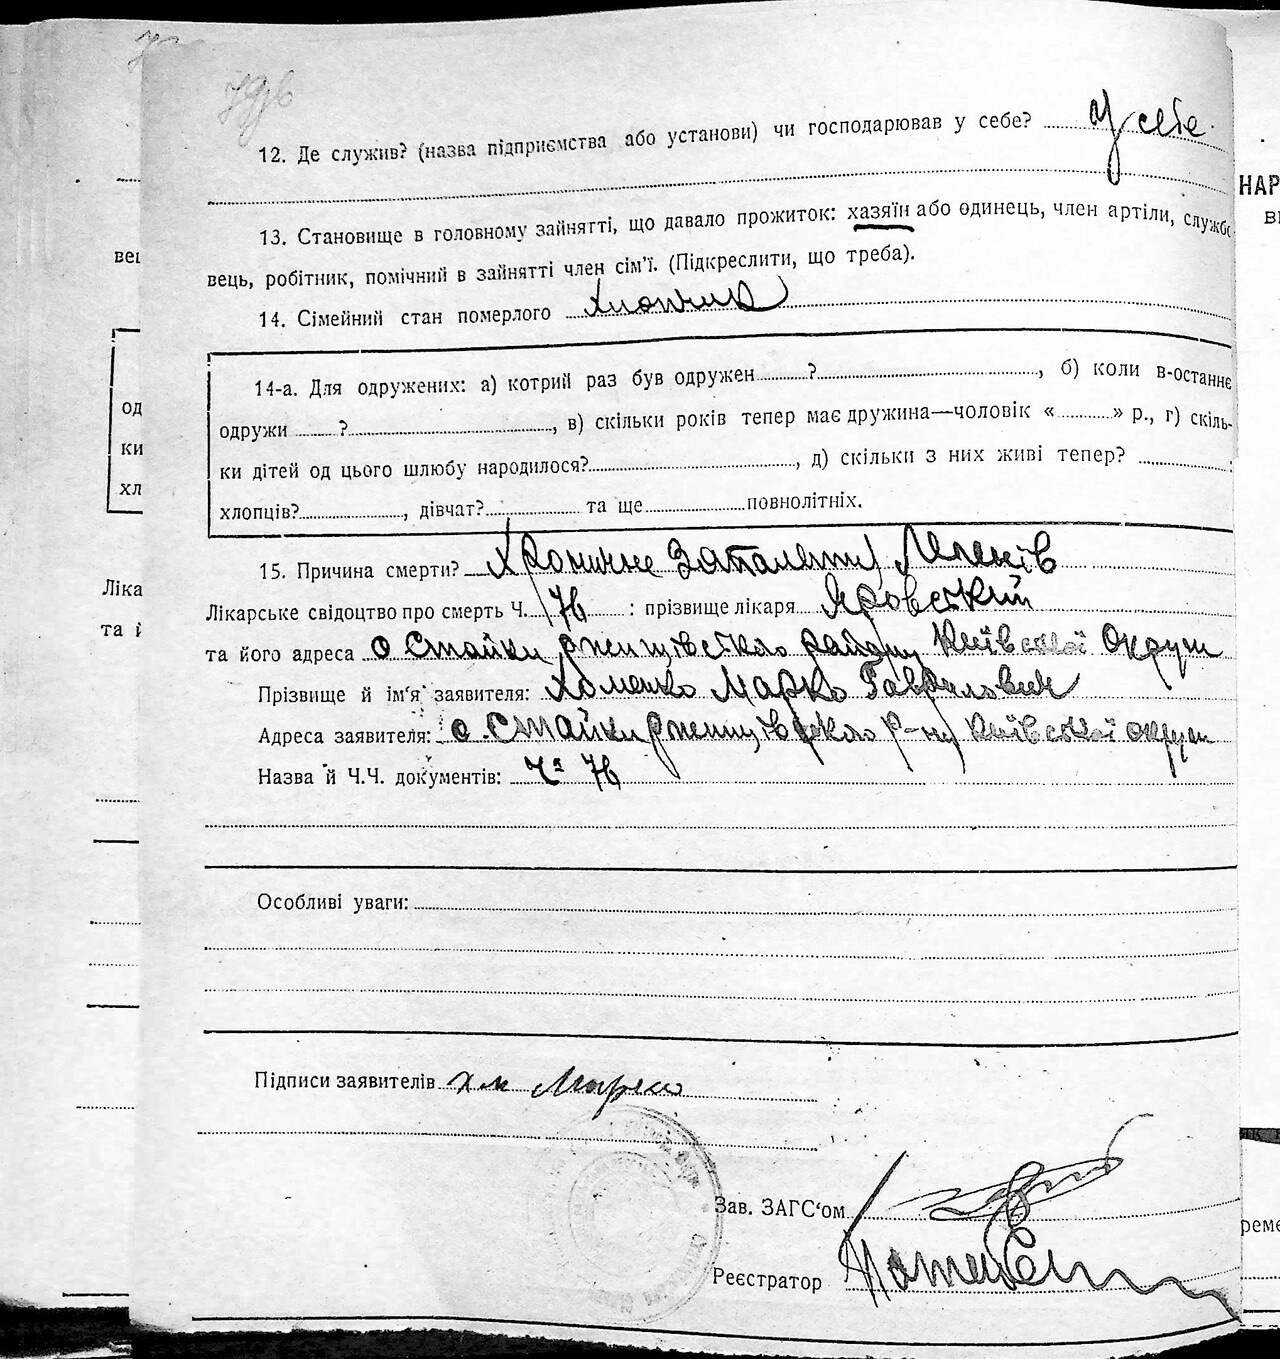 12. Де служив? (назва підприємства або установи) чи господарював у себе? У себе.
13. Становище в головному зайнятті, що давало прожиток: хазяїн або одинець, член артілі, службо
вець, робітник, помічний в зайнятті член сім'ї. (Підкреслити, що треба).
14. Сімейний стан померлого Хлопчик
14-а. Для одружених: а) котрий раз був одружен ? , б) коли в-останнє
одружи ? , в) скільки років тепер має дружина—чоловік « » р., г) скіль-
ки дітей од цього шлюбу народилося? , д) скільки з них живі тепер?
хлопців? , дівчат? та ще повнолітніх.
15. Причина смерти? Хронічне Запалення Легенів
Лікарське свідоцтво про смерть Ч. 76 : прізвище лікаря Яровский
та його адреса с Стайки Ржищівського району Київської Округи
Прізвище й ім'я заявителя: Хоменко Марко Гаврилович
Адреса заявителя: с. Стайки Ржищівського Р-ну Київської округи
Назва й Ч.Ч. документів: Ч 76
Особливі уваги:
Підписи заявителів хм Марко
Зав. ЗАГС'ом
Реєстратор
НАР
ві
вец
од
ки
хл
Ліка
та й
реме